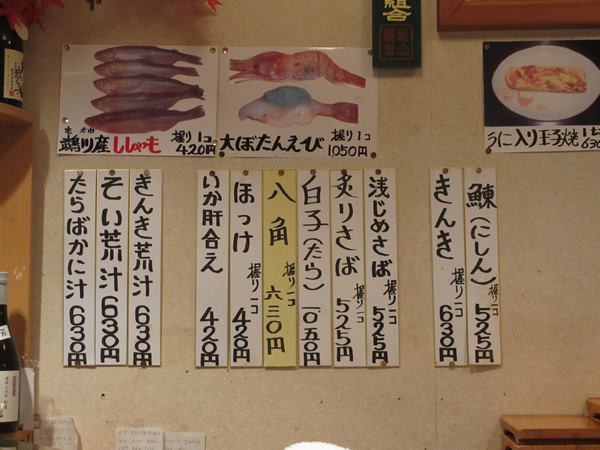 組合
むかわ
鵡川産ししゃも 握り1コ 420円
大ぼたんえび 握り1コ 1050円
うに入り玉子焼
鰊(にしん) 握り一コ 525円
きんき 握り一コ 630円
浅じめさば 握り一コ 525円
炙りさば 握り一コ 525円
白子(たら) 一〇五〇円
八角 握り一コ 六三〇円
ほっけ 握り一コ 420円
いか肝合え 420円
きんき荒汁 630円
そい荒汁 630円
たらばかに汁 630円